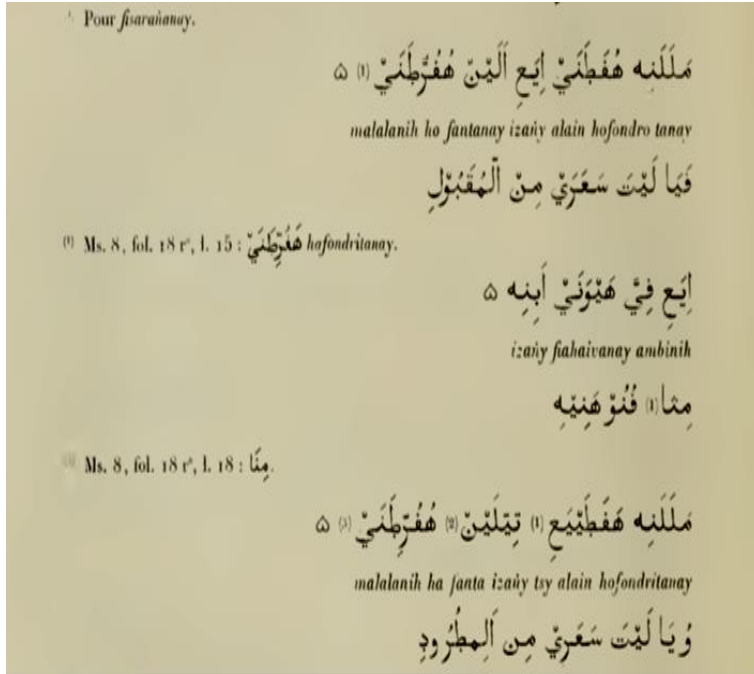 Pour fisarañanay.
مَلَلَنِه هُفَطَنَيْ اِيَعِ اَلَيْنْ هُفُرَّطَنَيْ (١) ۵
malalanih ho fantanay izañy alain hofondro tanay
فَيَا لَيْتَ سَعَرَيْ مِنْ اَلْمُقَبُوْلِ
(١) Ms. 8, fol. 18 r°, l. 15 : هَفُرِّطَنَيْ hafondritanay.
اِيَعِ فِيَّ هَيْوَنَيْ اَبِنِه ۵
izañy fiahaivanay ambinih
مِثا (١) فُنُوْ هَنِيْهِ
Ms. 8, fol. 18 r°, l. 18 : مِنَّا.
مَلَلَنِه هَفَطَيْيَعِ (١) تِيّلَيْنْ (٢) هُفُرِّطَنَيْ (٣) ۵
malalanih ha fanta izañy tsy alain hofondritanay
وُيَا لَيْتَ سَعَرِيْ مِن اَلِمطُرُودِ